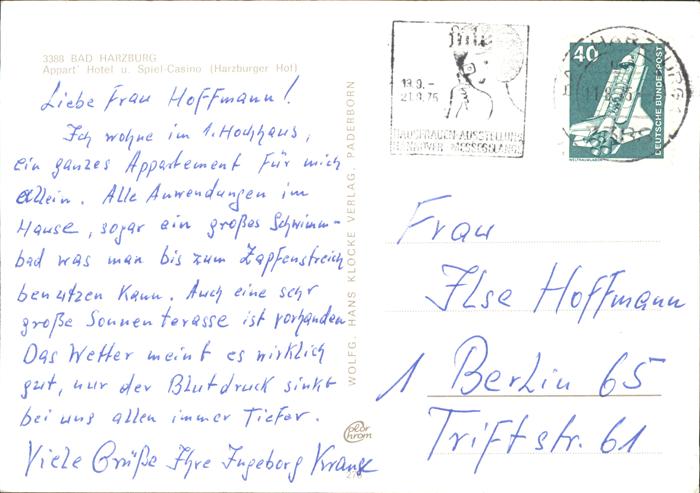 3388 BAD HARZBURG
Appart' Hotel u. Spiel-Casino (Harzburger Hof)
Liebe Frau Hoffmann!
Ich wohne im 1. Hochhaus,
ein ganzes Appartement für mich
allein. Alle Anwendungen im
Hause, sogar ein großes Schwimm-
bad was man bis zum Zapfenstreich
benutzen kann. Auch eine sehr
große Sonnenterasse ist vorhanden
Das Wetter meint es wirklich
gut, nur der Blutdruck sinkt
bei uns allen immer Tiefer.
Viele Grüße Ihre Ingeborg Krause
WOLFG. HANS KLOCKE VERLAG, PADERBORN
color
chrom
13.9. –
21.9.75
HAUSFRAUEN-AUSSTELLUNG
HANNOVER-MESSEGELÄNDE
BAD HARZBURG 1
40
DEUTSCHE BUNDESPOST
WELTRAUMLABOR
Frau
Ilse Hoffmann
1 Berlin 65
Triftstr. 61